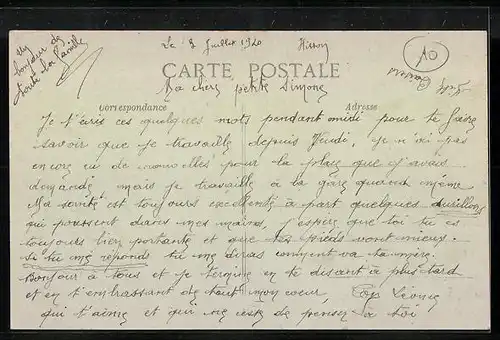 un bonjour de toute la famille
Le 9 Juillet 1920 Hirson
10
CARTE POSTALE
Ma chere petite Simone
Correspondance Adresse
Je t'écris ces quelques mots pendant midi pour te faire
savoir que je travaille depuis Jeudi, je n'ai pas
encore eu de nouvelles pour la place que j'avais
demandé, mais je travaille à la gare quand même
Ma santé est toujours excellente à part quelques durillons
qui poussent dans mes mains, j'espère que toi tu es
toujours bien portante et que tes pieds vont mieux.
Si tu me reponds tu me diras comment va ta mère.
Bonjour à tous et je termine en te disant à plus tard
et en t'embrassant de tout mon coeur, Ton
qui t'aime et qui ne cesse de penser à toi